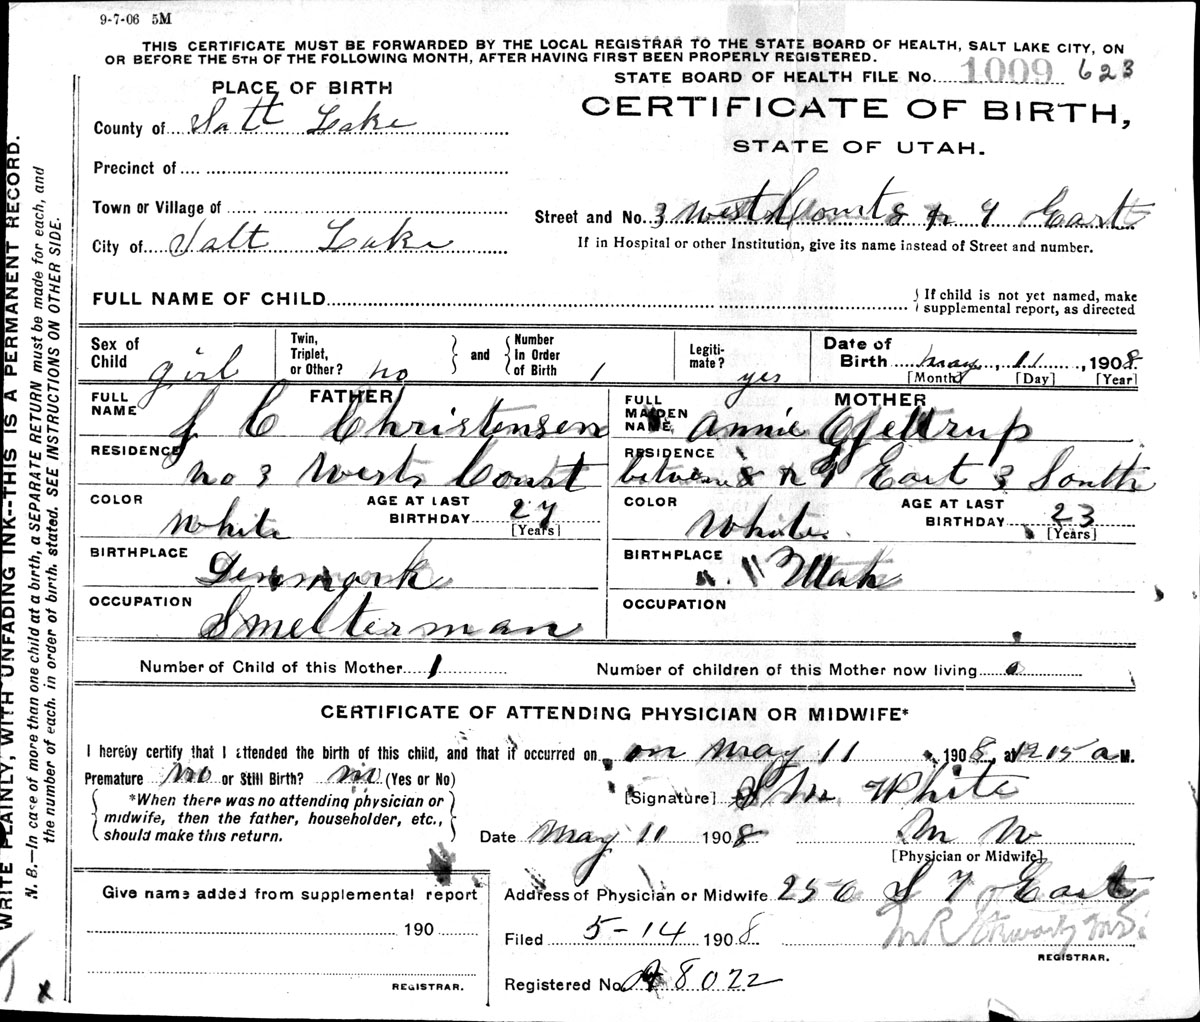 9-7-06 5M
THIS CERTIFICATE MUST BE FORWARDED BY THE LOCAL REGISTRAR TO THE STATE BOARD OF HEALTH, SALT LAKE CITY, ON
OR BEFORE THE 5TH OF THE FOLLOWING MONTH, AFTER HAVING FIRST BEEN PROPERLY REGISTERED.
STATE BOARD OF HEALTH FILE No. 1009 623
PLACE OF BIRTH
CERTIFICATE OF BIRTH,
STATE OF UTAH.
County of Salt Lake
Precinct of
Town or Village of
City of Salt Lake
Street and No. 3 West Court 8 & 9 East
If in Hospital or other Institution, give its name instead of Street and number.
FULL NAME OF CHILD
If child is not yet named, make
supplemental report, as directed
Sex of Child girl
Twin, Triplet, or Other? no
and
Number In Order of Birth 1
Legiti-mate? yes
Date of Birth May 11, 1908
[Month] [Day] [Year]
FATHER
FULL NAME J C Christensen
RESIDENCE No 3 West Court
COLOR White
AGE AT LAST BIRTHDAY 27
[Years]
BIRTHPLACE Denmark
OCCUPATION Smelterman
MOTHER
FULL MAIDEN NAME Annie Gjeltrup
RESIDENCE between 8 & 9 East 3 South
COLOR White
AGE AT LAST BIRTHDAY 23
[Years]
BIRTHPLACE Utah
OCCUPATION
Number of Child of this Mother 1
Number of children of this Mother now living
CERTIFICATE OF ATTENDING PHYSICIAN OR MIDWIFE*
I hereby certify that I attended the birth of this child, and that it occurred on on May 11, 1908 at 12 15 a M.
Premature No or Still Birth? no (Yes or No)
*When there was no attending physician or
midwife, then the father, householder, etc.,
should make this return.
[Signature] White
Date May 11 1908
[Physician or Midwife]
Give name added from supplemental report
190
REGISTRAR.
Address of Physician or Midwife 256 S 7 East
Filed 5-14 1908
REGISTRAR.
Registered No. 8022
WRITE PLAINLY, WITH UNFADING INK--THIS IS A PERMANENT RECORD.
N. B.—In case of more than one child at a birth, a SEPARATE RETURN must be made for each, and
the number of each, in order of birth, stated. SEE INSTRUCTIONS ON OTHER SIDE.